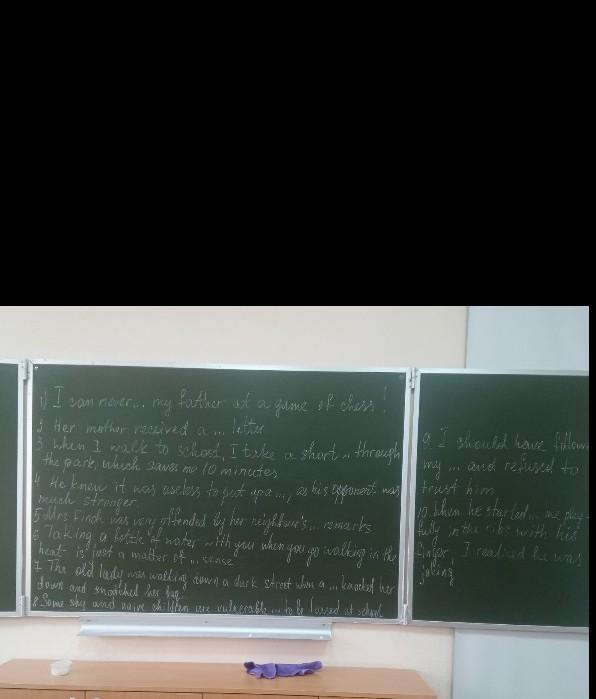 1) I can never... my father at a game of chess!
2 Her mother received a ... letter
3. When I walk to school, I take a short .. through
the park, which saves me 10 minutes
4. He knew it was useless to put up a ..., as his opponent was
much stronger
5. Mrs Finch was very offended by her neighbour's ... remarks
6 Taking a bottle of water with you when you go walking in the
heat is just a matter of ... sense
7. The old lady was walking down a dark street when a ... knocked her
down and snatched her bag
8. Some shy and naive children are vulnerable ... to be teased at school
9. I should have follow
my ... and refused to
trust him
10. When he started ... me play-
fully in the ribs with his
finger, I realised he was
joking